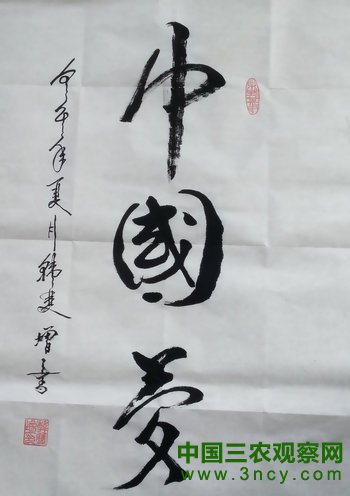 中國夢
午年夏月韩增书
中国三农观察网
www.3ncy.com